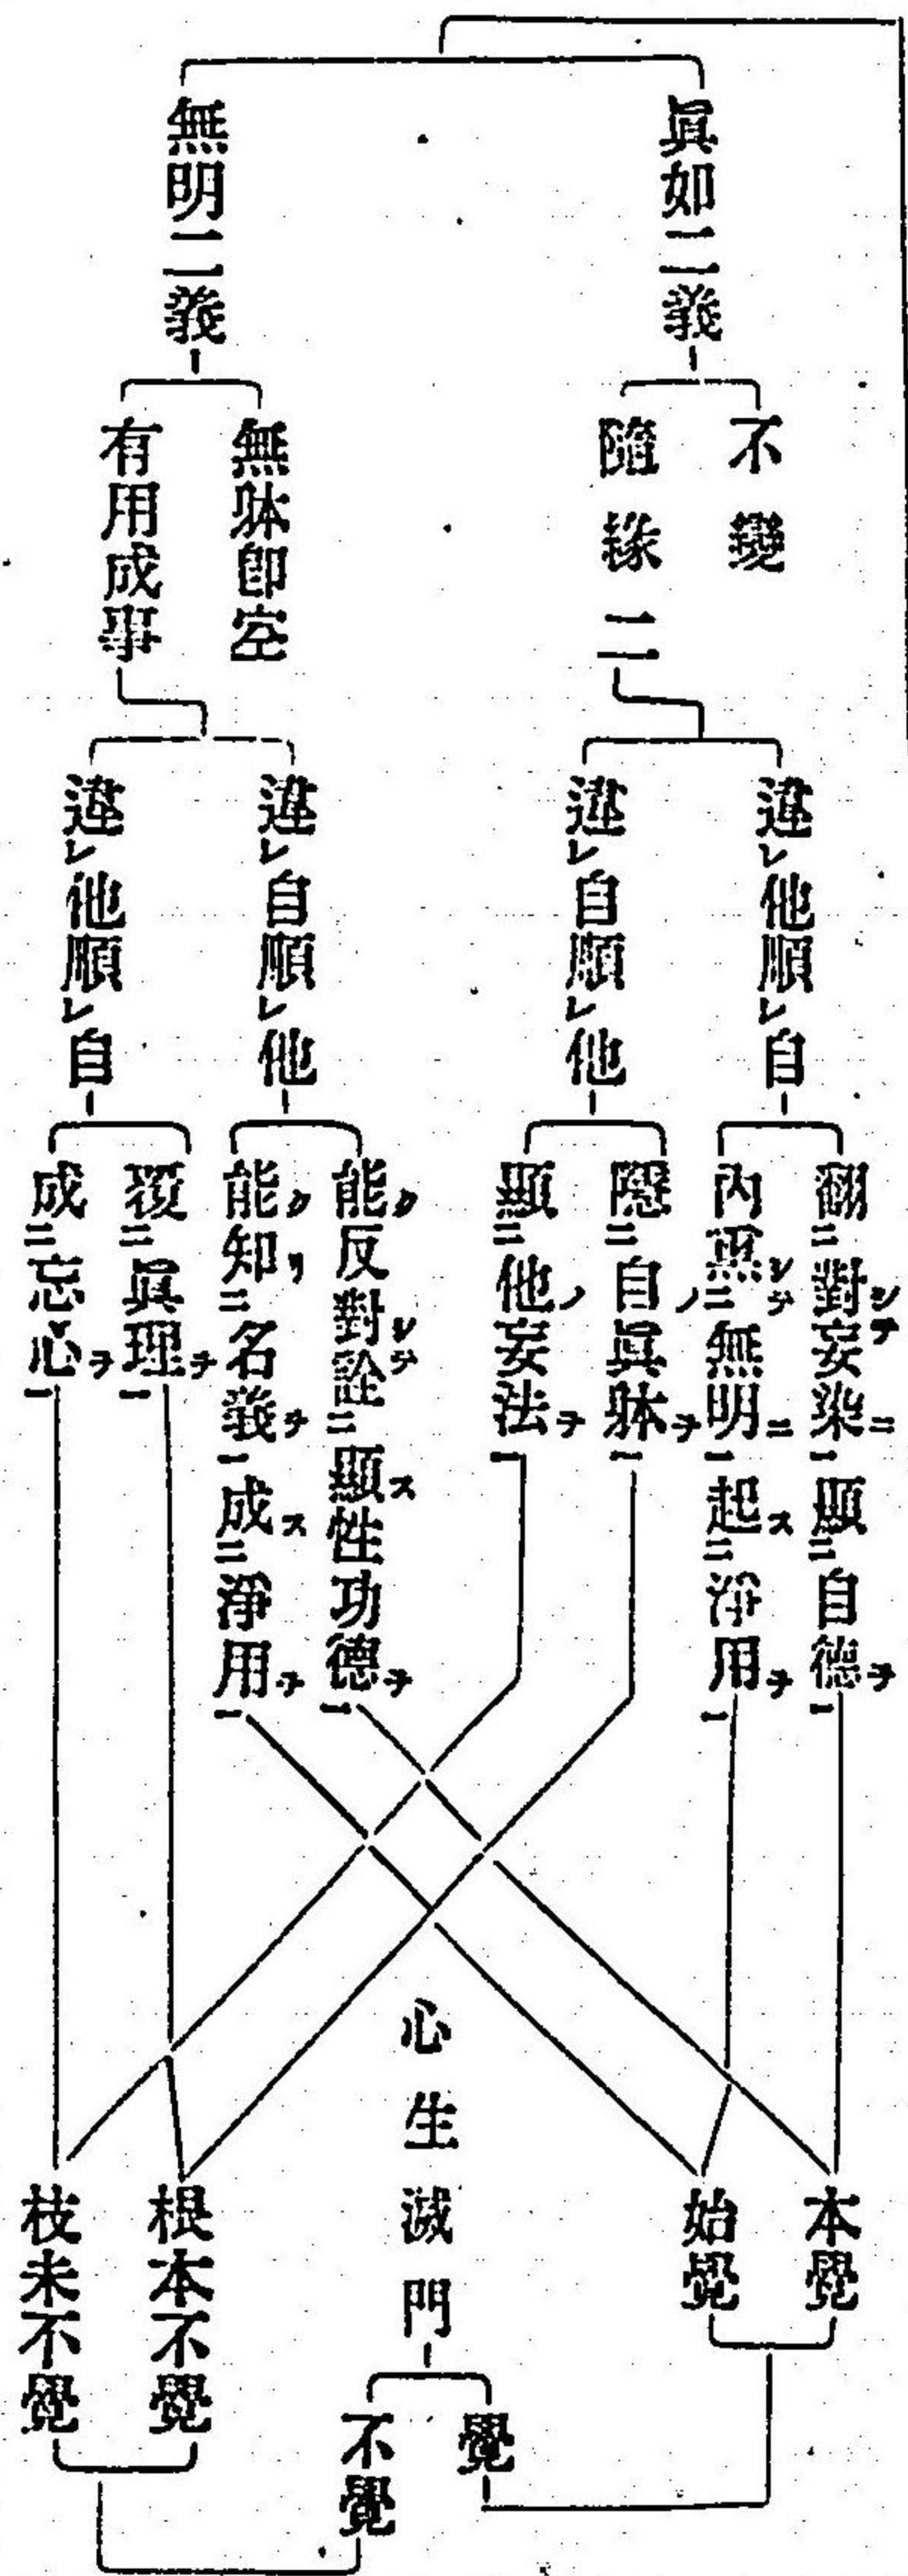 眞如二義
不變
隨緣二
違レ他順レ自
翻二對シテ妄染ニ一顯二自德ヲ一
內熏シテ二無明ニ一起ス二淨用ヲ一
違レ自順レ他
隱二自ノ眞躰ヲ一
顯二他ノ妄法ヲ一
無明二義
無躰卽空
有用成事
違レ自順レ他
能ク反對シテ詮二顯ス性功德ヲ一
能ク知リ二名義ヲ一成ス二淨用ヲ一
違レ他順レ自
覆二眞理ヲ一
成二忘心ヲ一
本覺
始覺
根本不覺
枝末不覺
心生滅門
覺
不覺